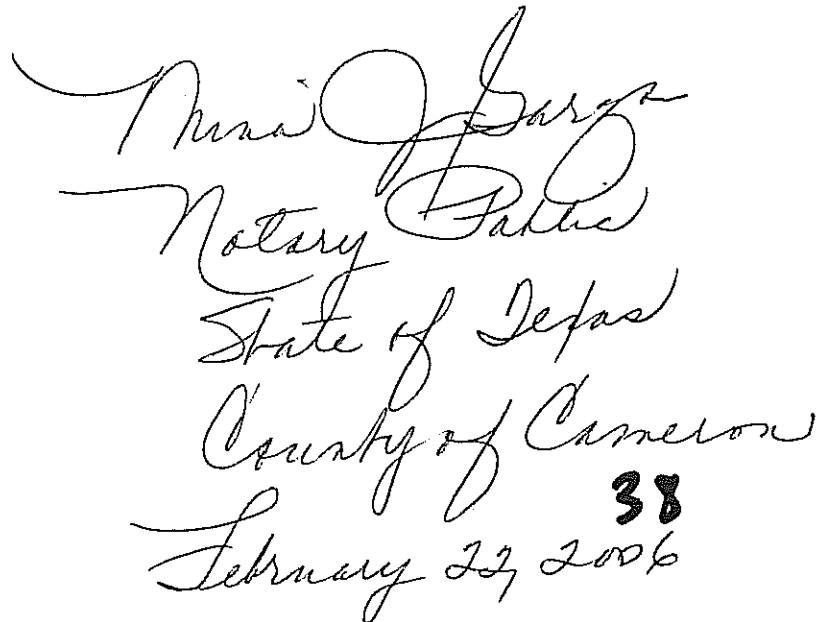 Nina J Garza
Notary Public
State of Texas
County of Cameron
38
February 22, 2006